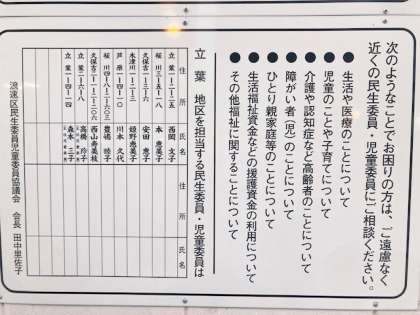 次のようなことでお困りの方は、ご遠慮なく
近くの民生委員・児童委員にご相談ください。
●生活や医療のことについて
●児童のことや子育てについて
●介護や認知症など高齢者のことについて
●障がい者（児）のことについて
●ひとり親家庭等のことについて
●生活福祉資金などの援護資金の利用について
●その他福祉に関することについて
立葉 地区を担当する民生委員・児童委員は
住所 氏名 住所 氏名
立葉一-二-二五 西岡 文子
桜川三-五-一八 本 恵子
久保吉一-三-六 安田 恵子
木津川一-二-三 姫野恵美子
芦原一-四-三 川本 久代
桜川四-一-三〇 豊嶋 睦子
西山寿美枝
立葉二-六-八 高橋 玲
立葉一-四-一四 森本 三子
浪速区民生委員児童委員協議会 会長 田中里佐子